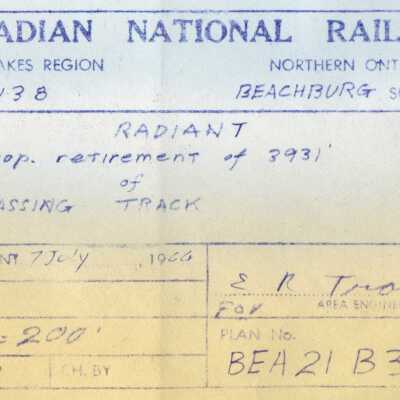 ADIAN NATIONAL RAIL
AKES REGION NORTHERN ONT
38 BEACHBURG S
RADIANT
op. retirement of 3931'
of
ASSING TRACK
7 July 1966
E R
For AREA ENGINE
= 200'
PLAN No.
CH. BY BEA 21 B 3